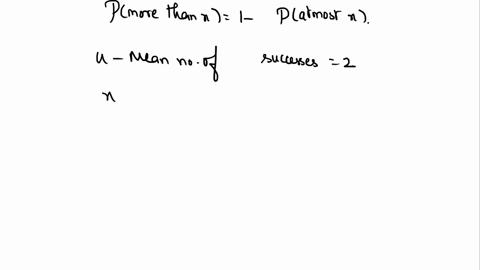 P(more than x) = 1 - P(atmost x).
u - Mean no. of successes = 2
x